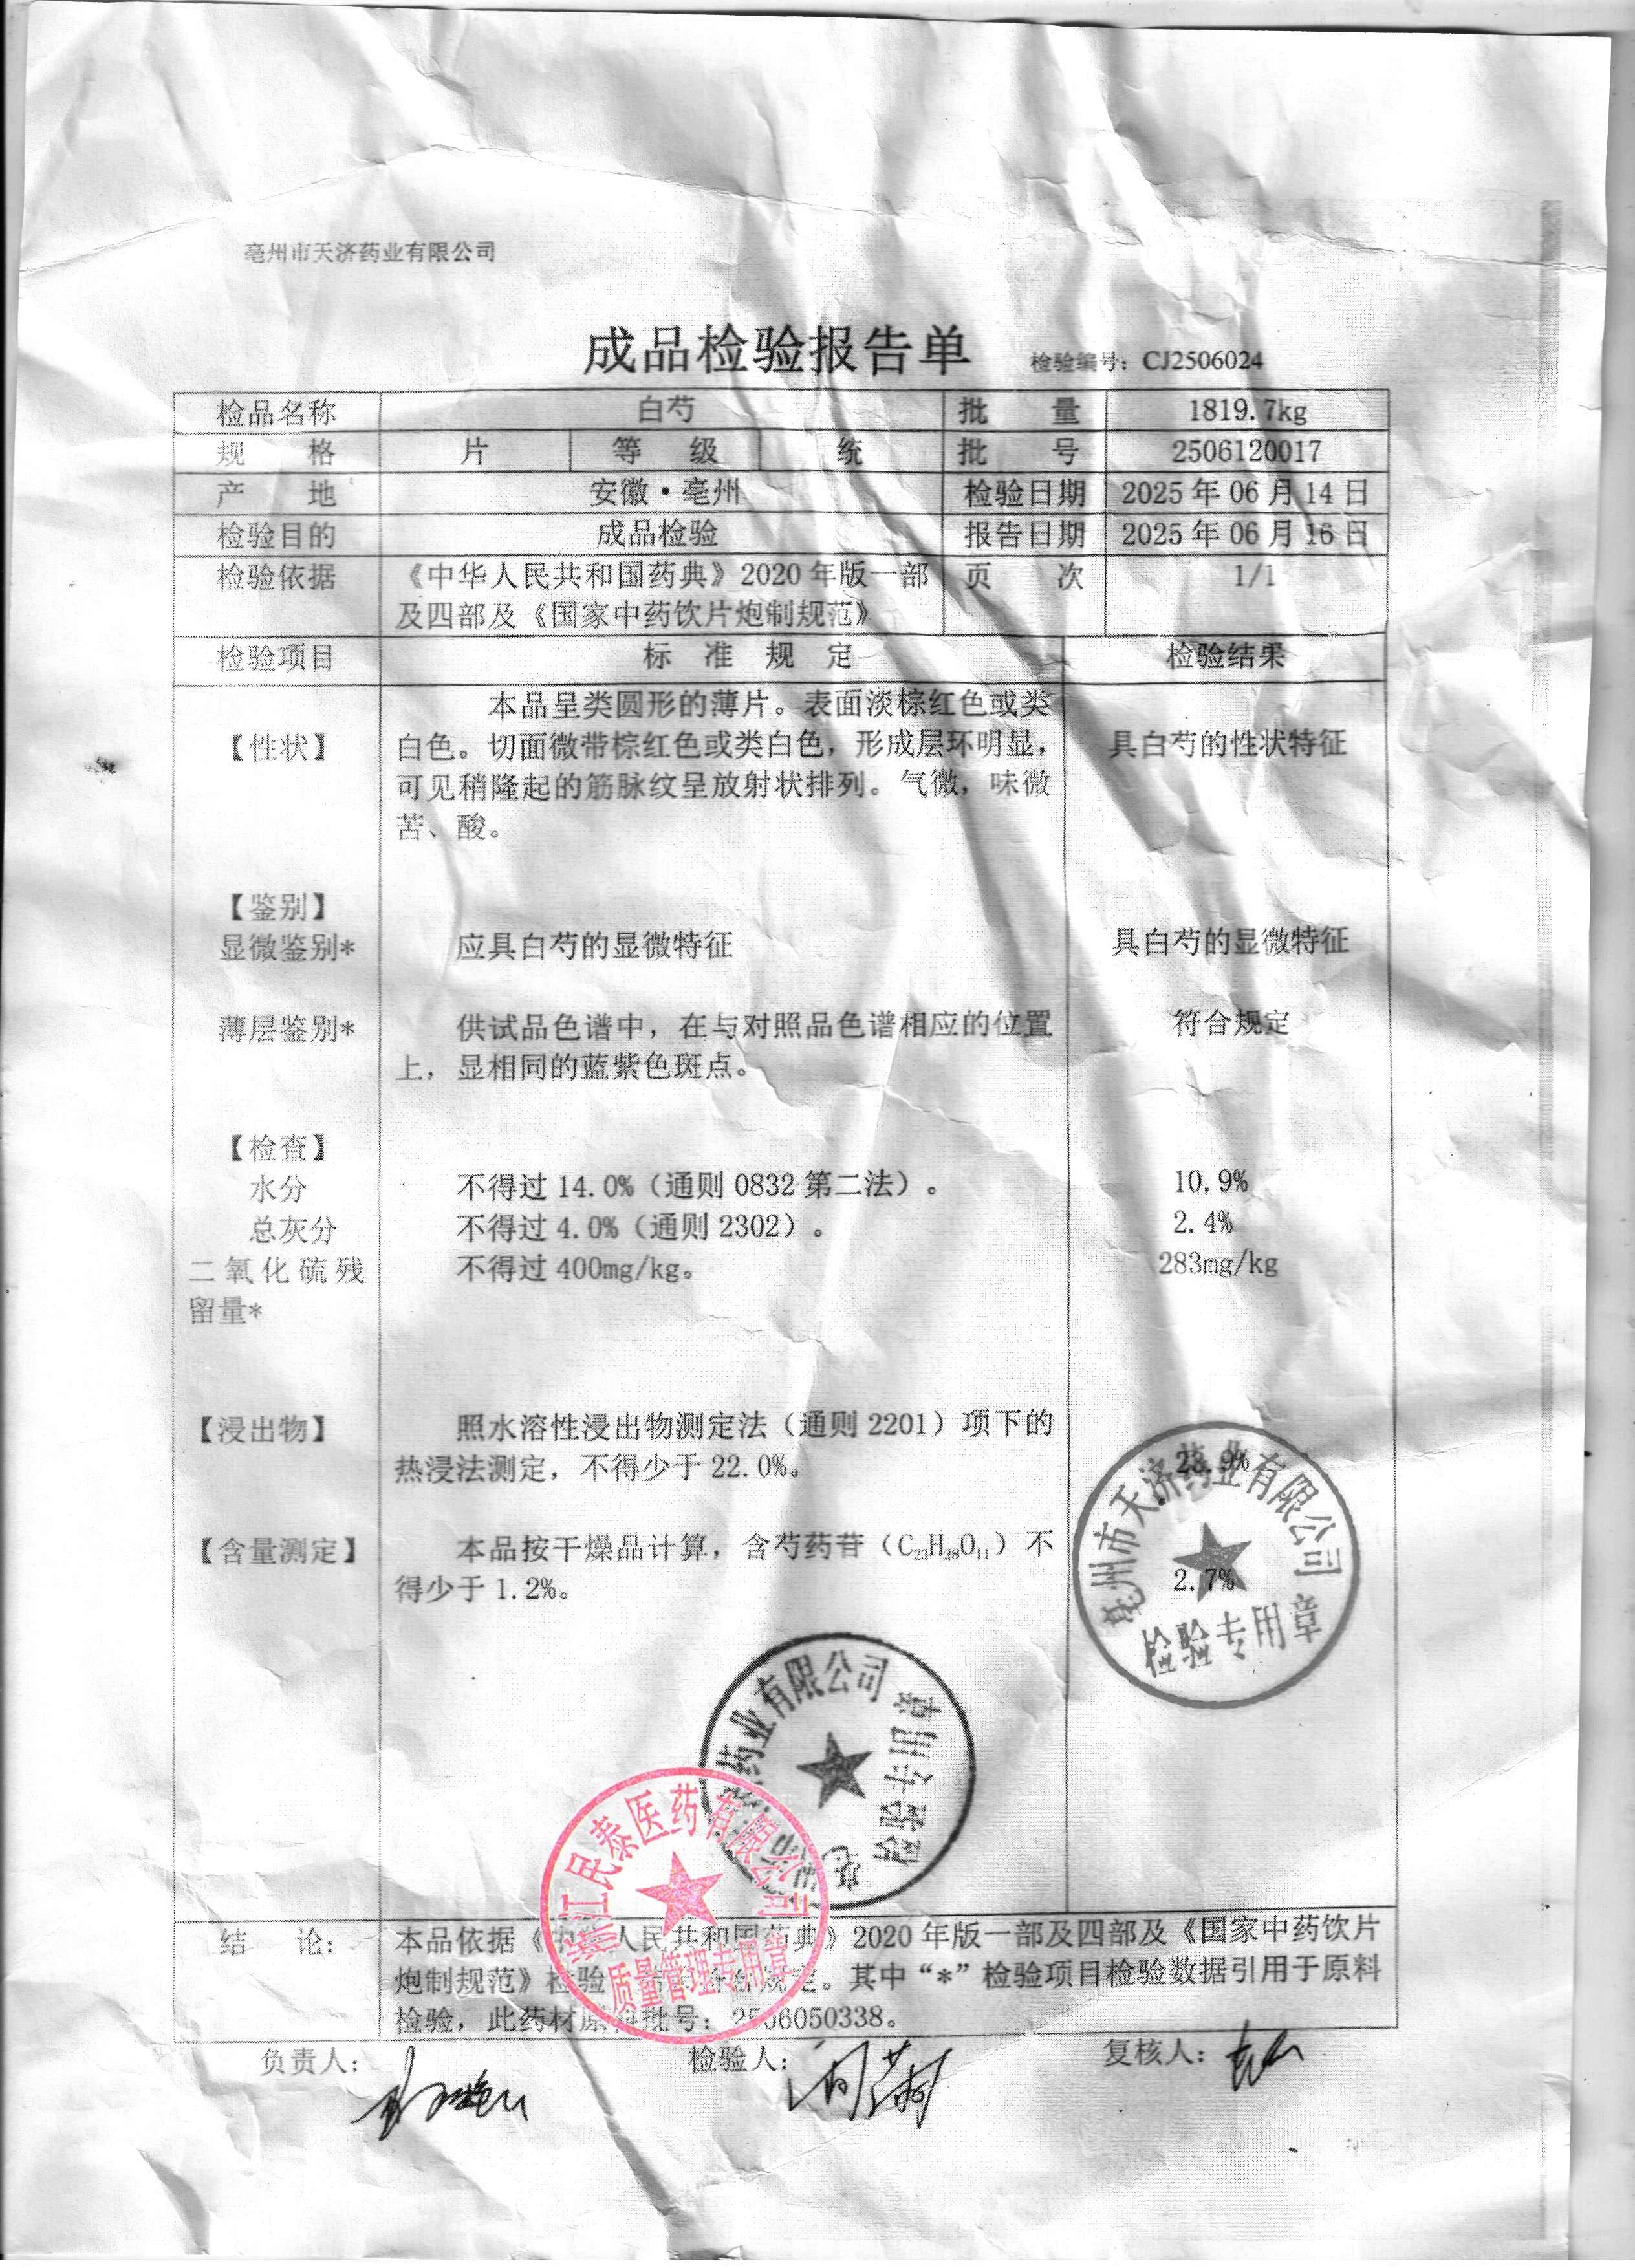 亳州市天济药业有限公司
成品检验报告单 检验编号：CJ2506024
检品名称 白芍 批 量 1819.7kg
规 格 片 等 级 统 批 号 2506120017
产 地 安徽·亳州 检验日期 2025年06月14日
检验目的 成品检验 报告日期 2025年06月16日
检验依据 《中华人民共和国药典》2020年版一部 页 次 1/1
及四部及《国家中药饮片炮制规范》
检验项目 标 准 规 定 检验结果
本品呈类圆形的薄片。表面淡棕红色或类
【性状】 白色。切面微带棕红色或类白色，形成层环明显， 具白芍的性状特征
可见稍隆起的筋脉纹呈放射状排列。气微，味微
苦、酸。
【鉴别】
显微鉴别* 应具白芍的显微特征 具白芍的显微特征
薄层鉴别* 供试品色谱中，在与对照品色谱相应的位置 符合规定
上，显相同的蓝紫色斑点。
【检查】
水分 不得过14.0%（通则0832第二法）。 10.9%
总灰分 不得过4.0%（通则2302）。 2.4%
二氧化硫残 不得过400mg/kg。 283mg/kg
留量*
【浸出物】 照水溶性浸出物测定法（通则2201）项下的
热浸法测定，不得少于22.0%。 23.9%
【含量测定】 本品按干燥品计算，含芍药苷（C₂₃H₂₈O₁₁）不
得少于1.2%。 2.7%
亳州市天济药业有限公司
检验专用章
药业有限公司
检验专用章
浙江民泰医药有限公司
质量管理专用章
结 论： 本品依据《中华人民共和国药典》2020年版一部及四部及《国家中药饮片
炮制规范》检验 规定。其中“*”检验项目检验数据引用于原料
检验，此药材原料批号：2506050338。
负责人： 检验人： 复核人：